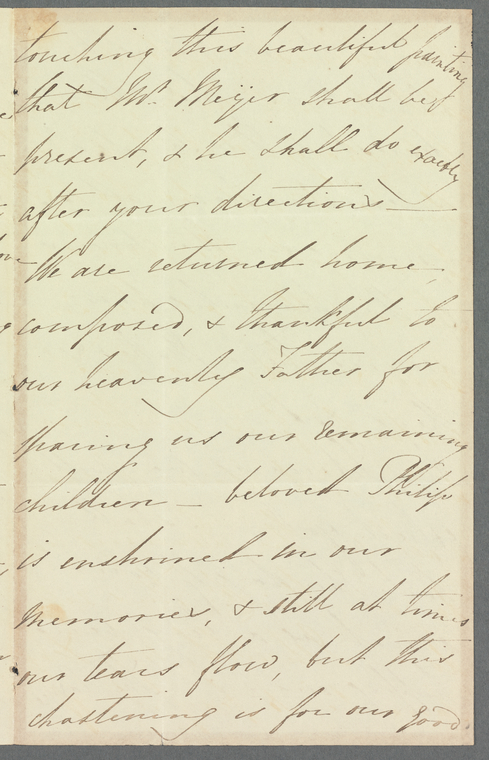 touching this beautiful painting
that Mr. Meijer shall be
present, & he shall do exactly
after your directions —
We are returned home,
composed, & thankful to
our heavenly Father for
sparing us our remaining
children — beloved Philip
is enshrined in our
memories, & still at times
our tears flow, but this
chastening is for our good.